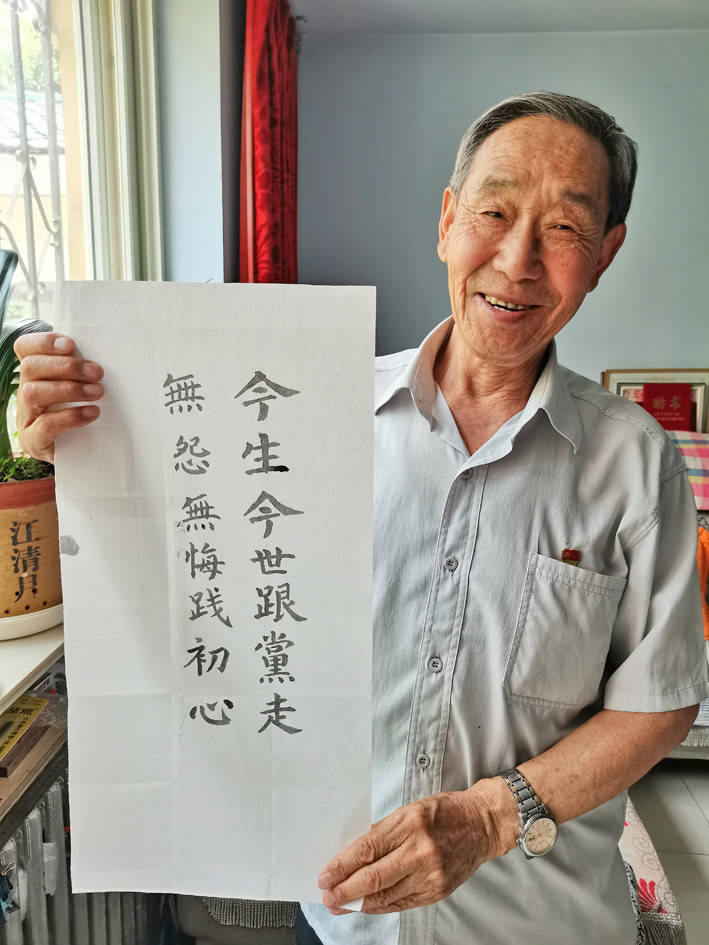 今生今世跟黨走
無怨無悔践初心
江清月